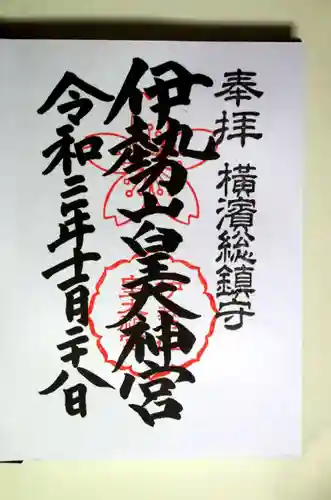 奉拝 横濱総鎮守
伊勢山皇大神宮
令和三年十一月二十八日